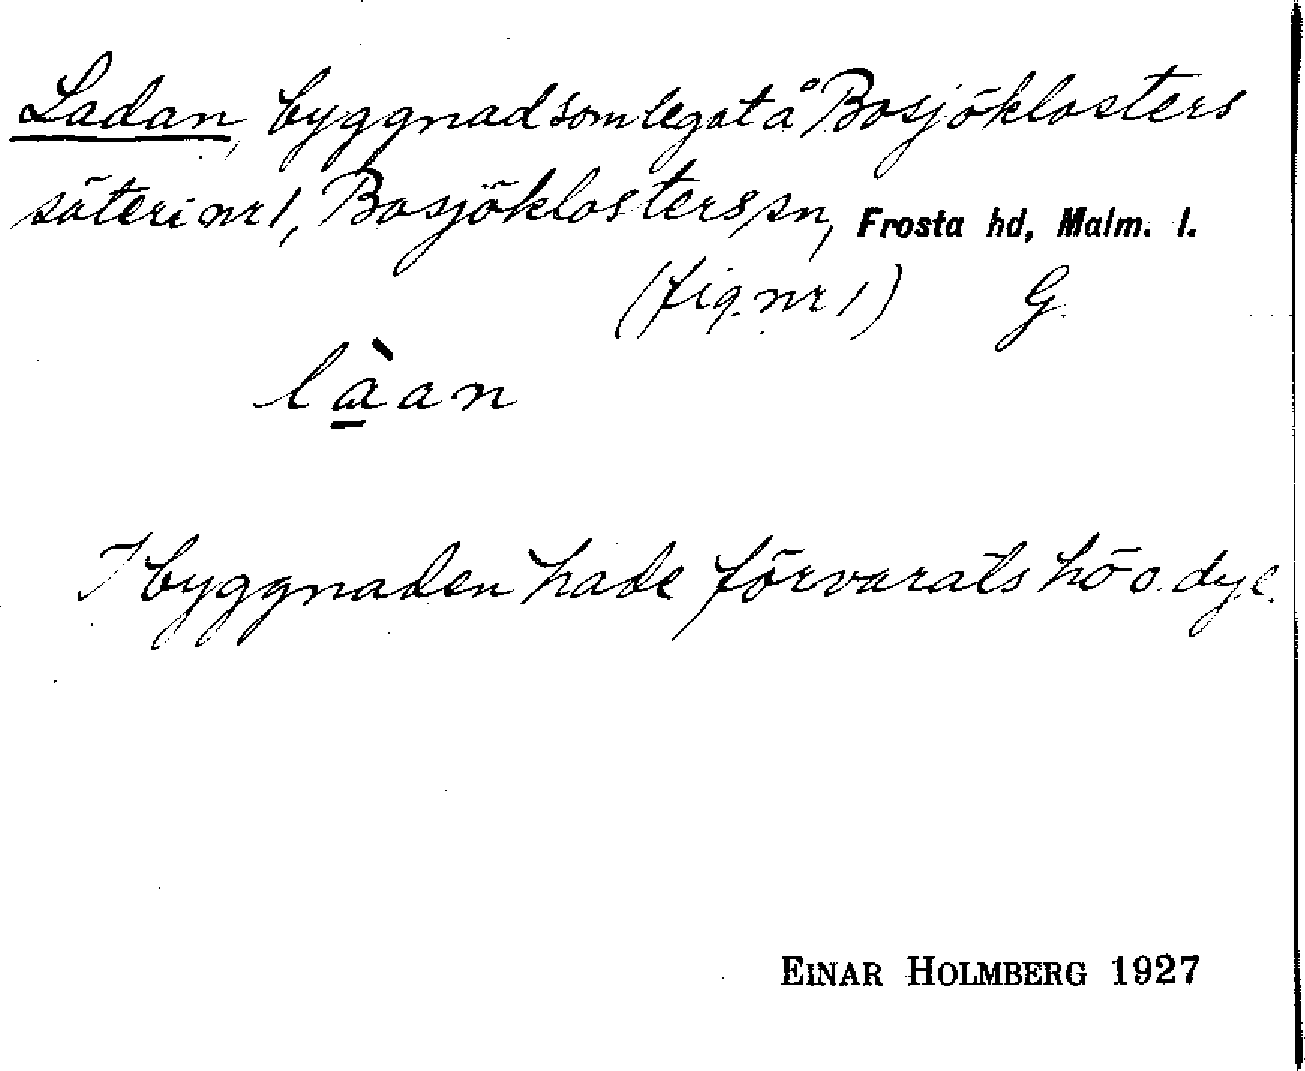 Ladan, byggnad som legat å Bosjöklosters
säteri nr 1, Bosjöklosters sn, Frosta hd, Malm. l.
(fig. nr 1) G.
là̱an
I byggnaden hade förvarats hö o. dyl.
EINAR HOLMBERG 1927